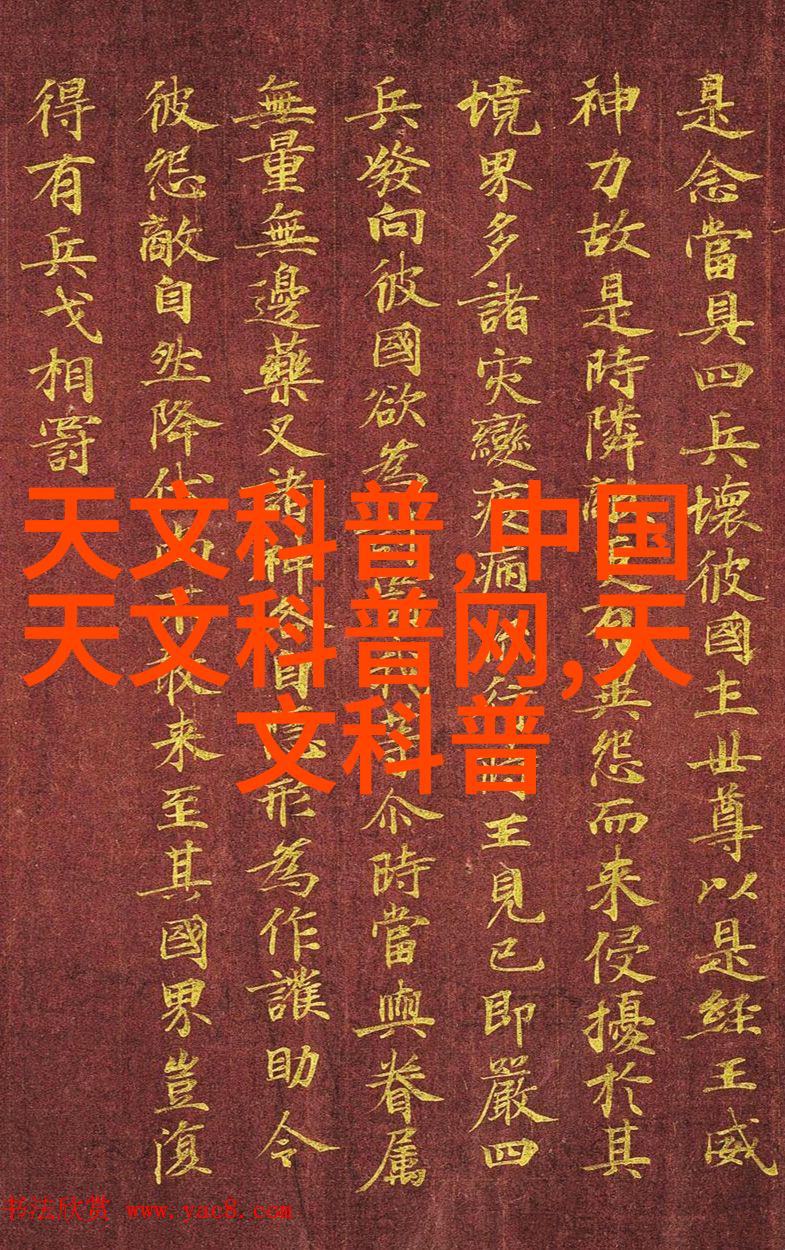 是念當具四兵壞彼國土世尊以是經王威
神力故是時隣敵更有異怨而来侵擾於其
境界多諸灾變疫病流行時王見已即嚴四
兵發向彼國欲為討罰我等尒時當與眷属
無量無邊藥叉諸神各自隱形為作護助令
彼怨敵自然降伏尚不敢来至其國界豈復
得有兵戈相罸
天文科普,中国
天文科普网,天
文科普
书法欣赏 www.yac8.com